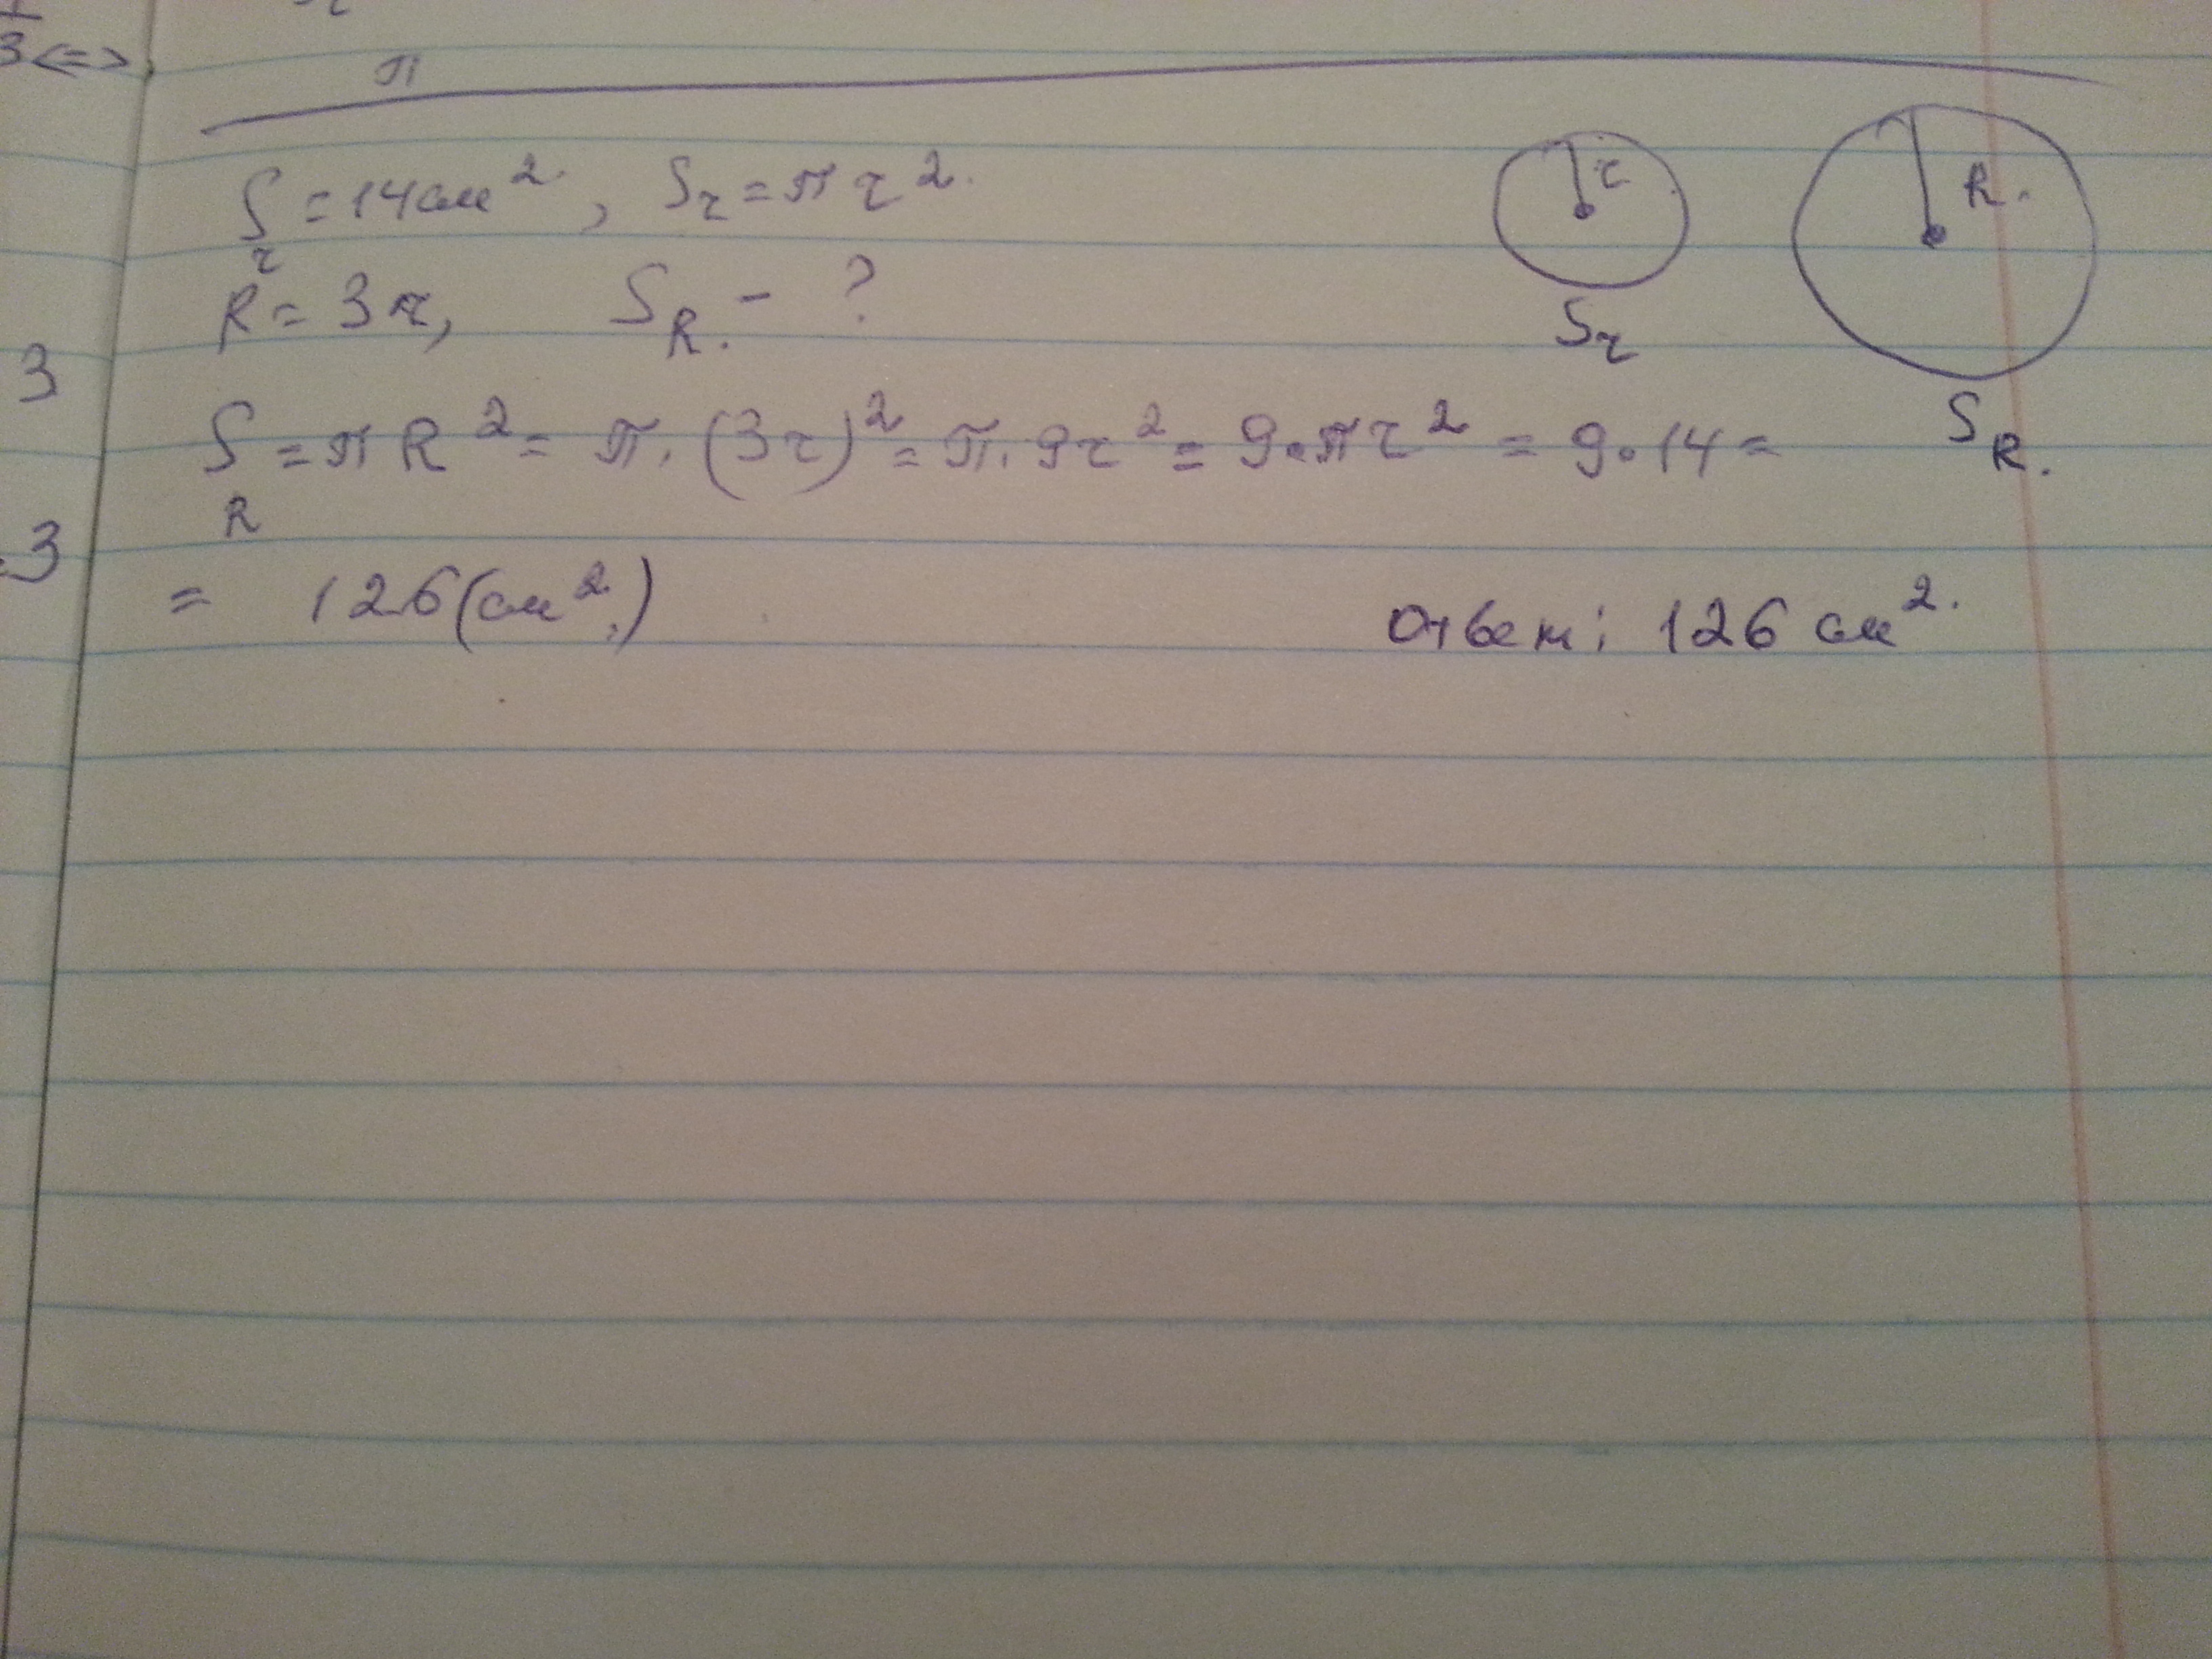 3<=>
π
S_r = 14 см², S_r = πr².
R = 3r, S_R. - ?
r
R.
S_r
S_R.
3
S_R = πR² = π · (3r)² = π · 9r² = 9 · πr² = 9 · 14 =
.3
= 126 (см².)
Ответ: 126 см².